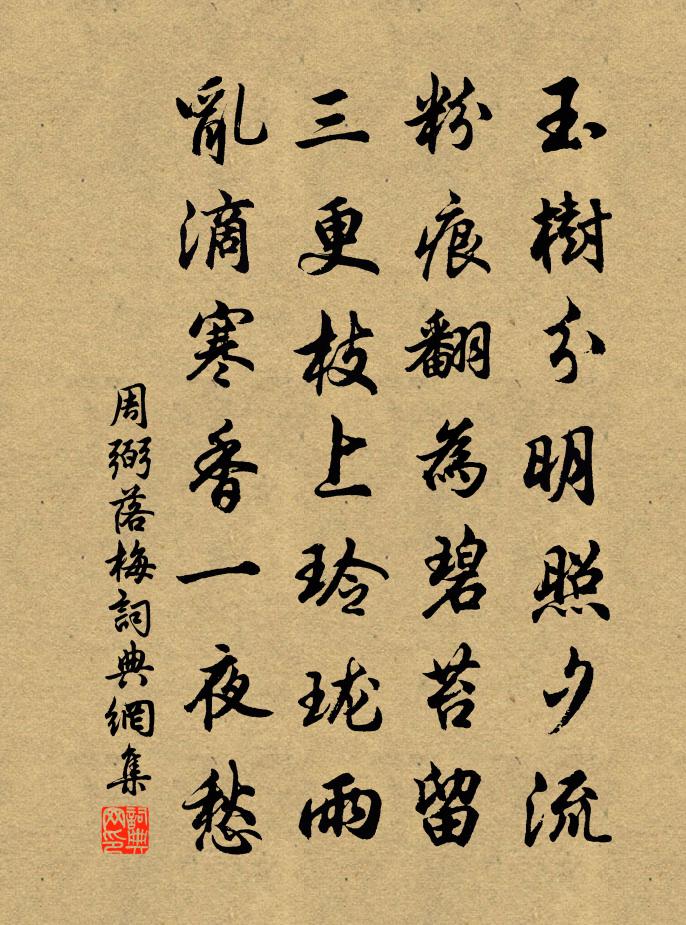 玉樹分明照夕流
粉痕翻為碧苔留
三更枝上玲瓏雨
亂滴寒香一夜愁
周弼落梅詞典網集
詞典網印